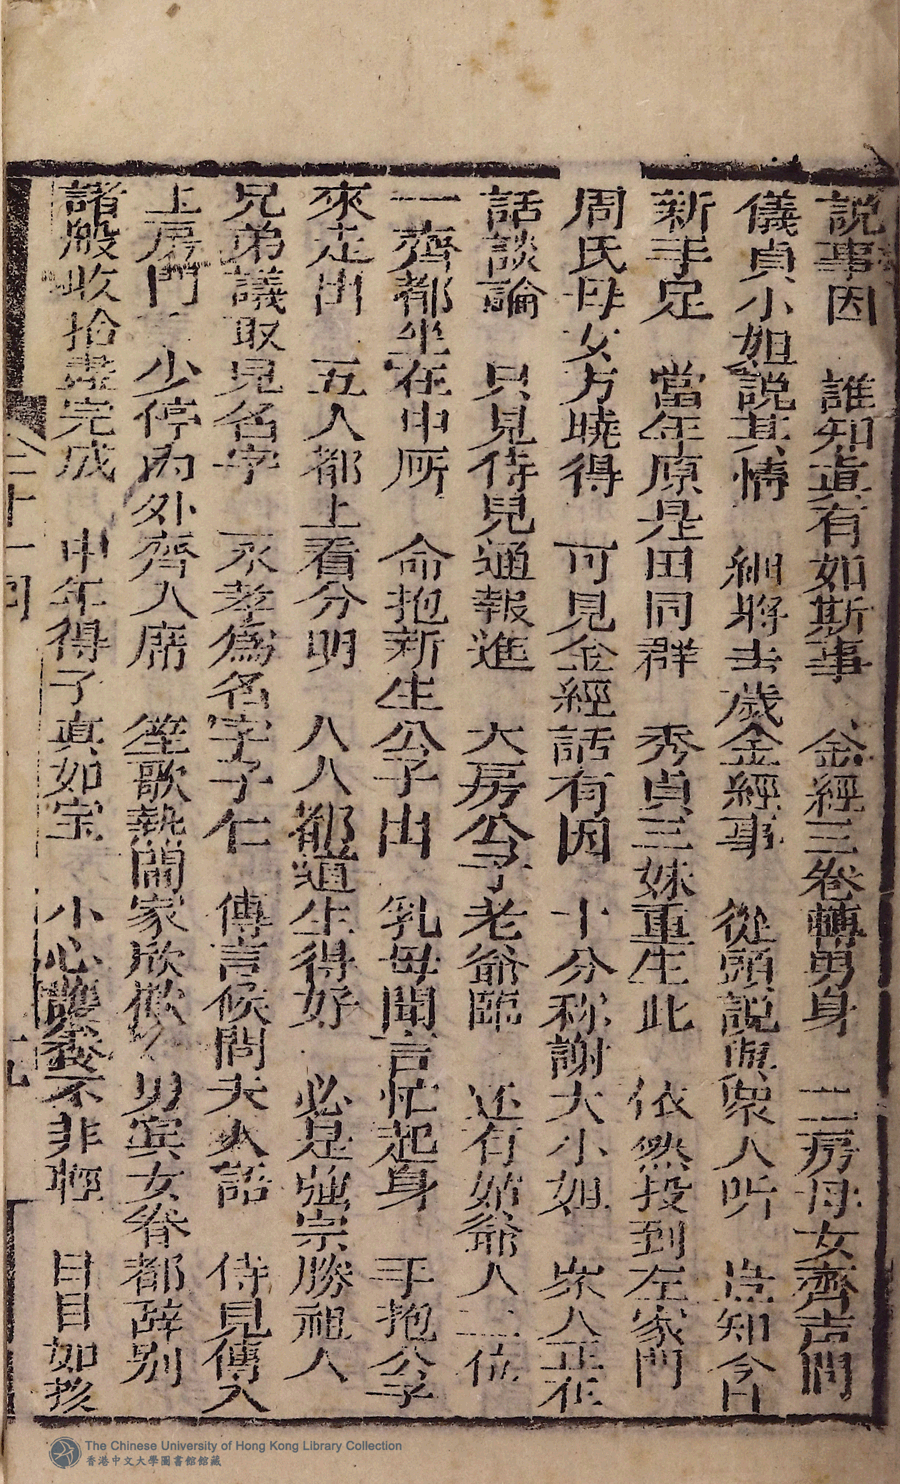 説事因　誰知真有如斯事　金經三卷轉男身　二房母女齊声問
儀貞小姐説其情　細將去歲金經事　從頭説與衆人听　豈知今日
新手足　當年原是田同群　秀貞三妹重生此　依然投到左家門
周氏母女方曉得　可見金經話有因　十分称謝大小姐　衆人正在
話談論　只見侍兒通報進　大房公子老爺臨　还有姑爺人二位
一齊都坐在中厢　命抱新生公子出　乳母聞言忙起身　手抱公子
來走出　五人都上看分明　人人都道生得好　必是強宗勝祖人
兄弟議取兒名字　永孝為名字子仁　傳言候問夫人語　侍兒傳入
上房門　少停內外齊入席　笙歌熱鬧家欣歡　男宾女眷都辞別
諸般收拾盡完成　中年得子真如宝　小心護養不非輕　日目如孩
全十一囬
九
The Chinese University of Hong Kong Library Collection
香港中文大學圖書館館藏